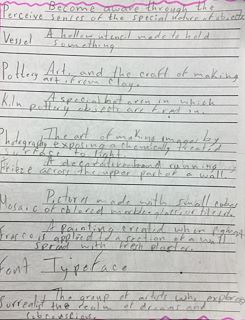 Become aware through the
Perceive senses of the special nature of objects
A hollow utensil made to hold
Vessel something
Pottery Art, and the craft of making
art from clay.
A special hot oven in which
Kiln pottery objects are fired in.
The art of making images by
Photography exposing a chemically treated
surface to light
A decorative band running
Frieze across the upper part of a wall
Pictures made with small cubes
Mosaic of colored marble, glass, or tile
A painting created when pigment
Fresco is applied to a section of a wall
spread with fresh plaster.
Font Typeface
The group of artists who explored
Surrealist the realm of dreams and
subconscious.